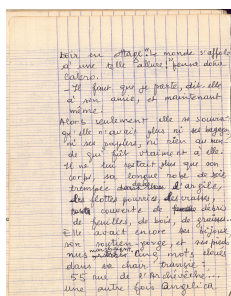 voir un otage. "Le monde s'affole
à une telle allure!" pensa doña
Calero.
– Il faut que je parte, dit-elle
à son amie, et maintenant
même.
Alors seulement elle se souvint
qu'elle n'avait plus ni ses bagages
ni ses papiers, ni rien au monde
de qui fût vraiment à elle.
Il ne lui restait plus que son
corps, sa longue robe de soie
trempée d'argile,
des flottes pourries
couverte de débris
de feuilles, de bois, de graisse...
Elle avait encore ses bijoux
son soutien-gorge, et ses pieds
nus. Cinq mots cloués
dans sa chair transie:
55 rue de l'Archevêché...
une autre fois Angelica